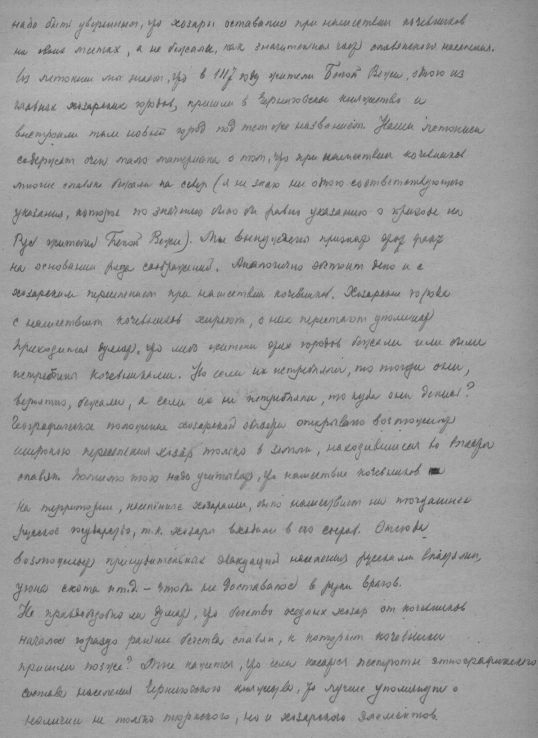 надо быть уверенным, что хазары оставались при нашествии кочевников
на своих местах, а не бежали, как значительная часть славянского населения.
Из летописи мы знаем, что в 1117 году жители Белой Вежи, одного из
главных хазарских городов, пришли в Черниговское княжество и
выстроили там новый город под тем же названием. Наши летописи
содержат очень мало материала о том, что при нашествии кочевников
многие славяне бежали на север (я не знаю ни одного соответствующего
указания, которое по значению было бы равно указанию о приходе на
Русь жителей Белой Вежи). Мы вынуждены признать этот факт
на основании ряда соображений. Аналогично обстоит дело и с
хазарским переселением при нашествии кочевников. Хазарские города
с нашествием кочевников хиреют, о них перестают упоминать
Приходится думать, что либо жители этих городов бежали или были
истреблены кочевниками. Но если их истребляли, то тогда они,
вероятно, бежали, а если их не истребляли, то куда они делись?
Географическое положение хазарской области открывало возможность
широкого переселения хазар только в земли, находившиеся во владении
славян. Помимо того надо учитывать, что нашествие кочевников
на территории, населенные хазарами, было нашествием на тогдашнее
русское государство, т.к. хазары входили в его состав. Отсюда
возможность принудительных эвакуаций населения русскими властями,
угона скота и т.д. – чтобы не доставалось в руки врагов.
Не правдоподобно ли думать, что бегство оседлых хазар от кочевников
началось гораздо раньше бегства славян, к которым кочевники
пришли позже? Мне кажется, что если касаться пестроты этнографического
состава населения Черниговского княжества, то лучше упомянуть о
наличии не только тюркского, но и хазарского элементов.